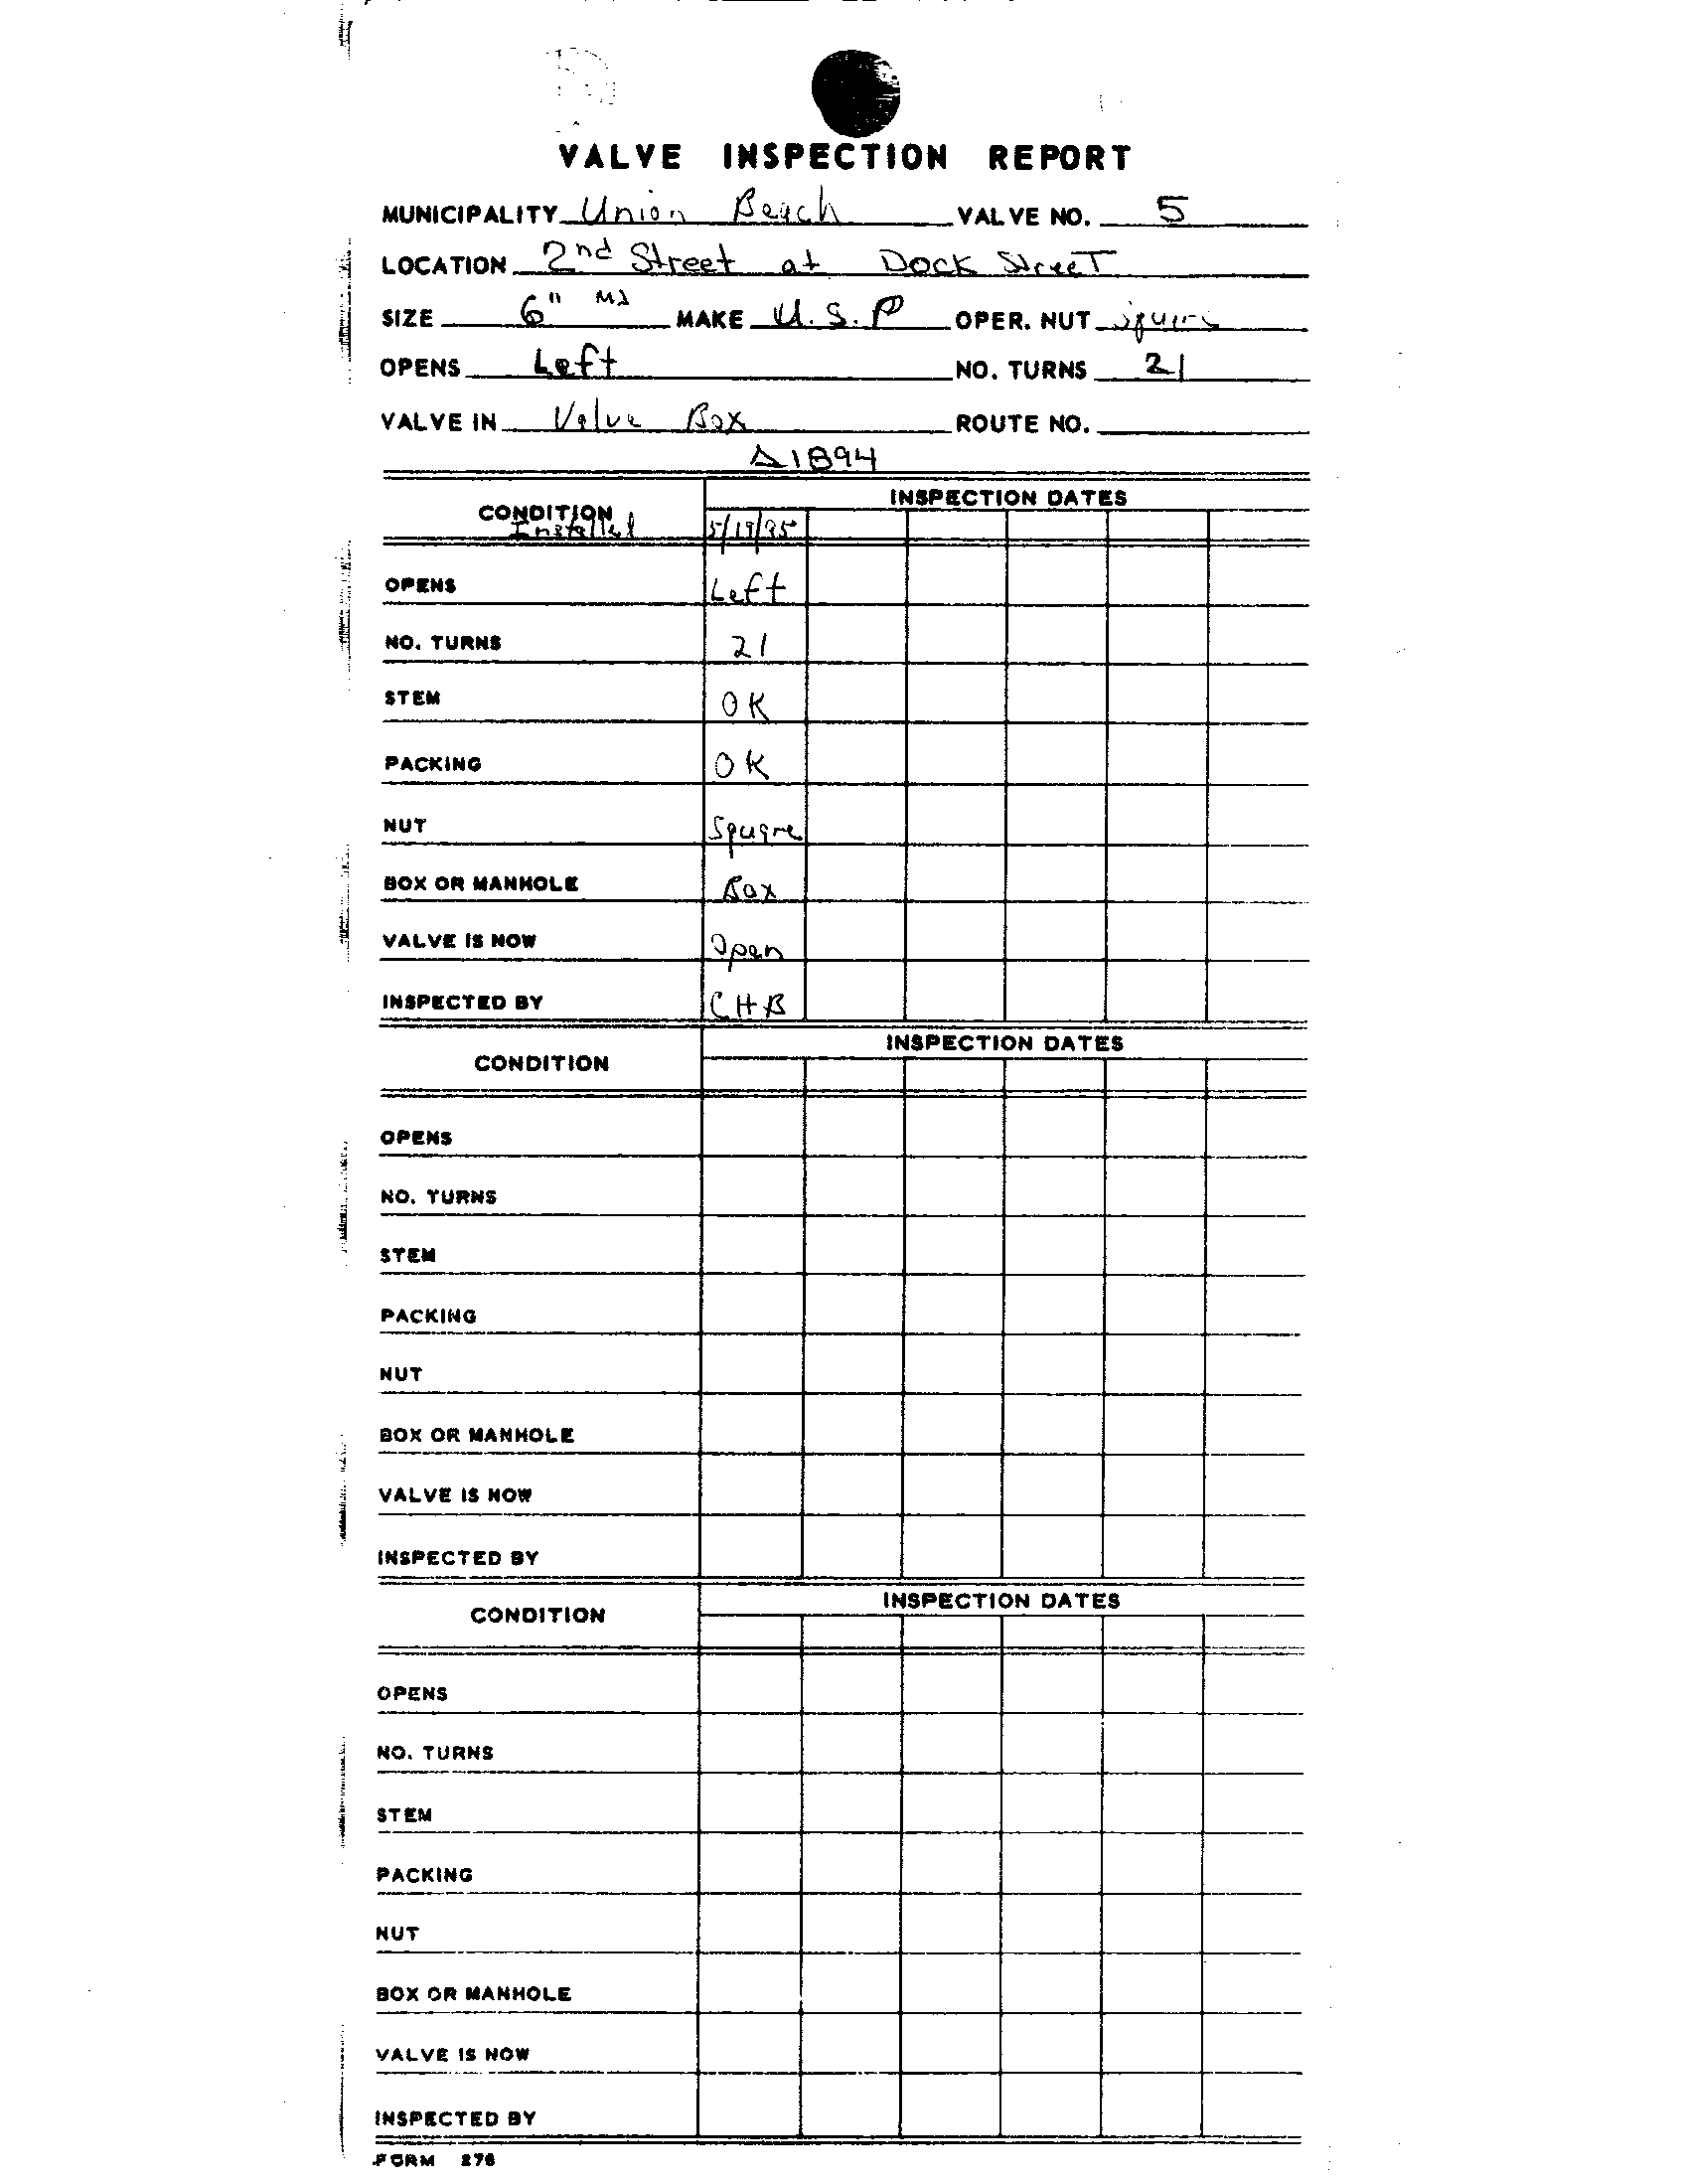 VALVE INSPECTION REPORT
MUNICIPALITY Union Beach VALVE NO. 5
LOCATION 2nd Street at Dock Street
SIZE 6" MJ MAKE U.S.P OPER. NUT Square
OPENS Left NO. TURNS 21
VALVE IN Valve Box ROUTE NO.
1894
CONDITION INSPECTION DATES
Installed 5/19/95
OPENS Left
NO. TURNS 21
STEM OK
PACKING OK
NUT Square
BOX OR MANHOLE Box
VALVE IS NOW Open
INSPECTED BY CHB
CONDITION INSPECTION DATES
OPENS
NO. TURNS
STEM
PACKING
NUT
BOX OR MANHOLE
VALVE IS NOW
INSPECTED BY
CONDITION INSPECTION DATES
OPENS
NO. TURNS
STEM
PACKING
NUT
BOX OR MANHOLE
VALVE IS NOW
INSPECTED BY
FORM 276